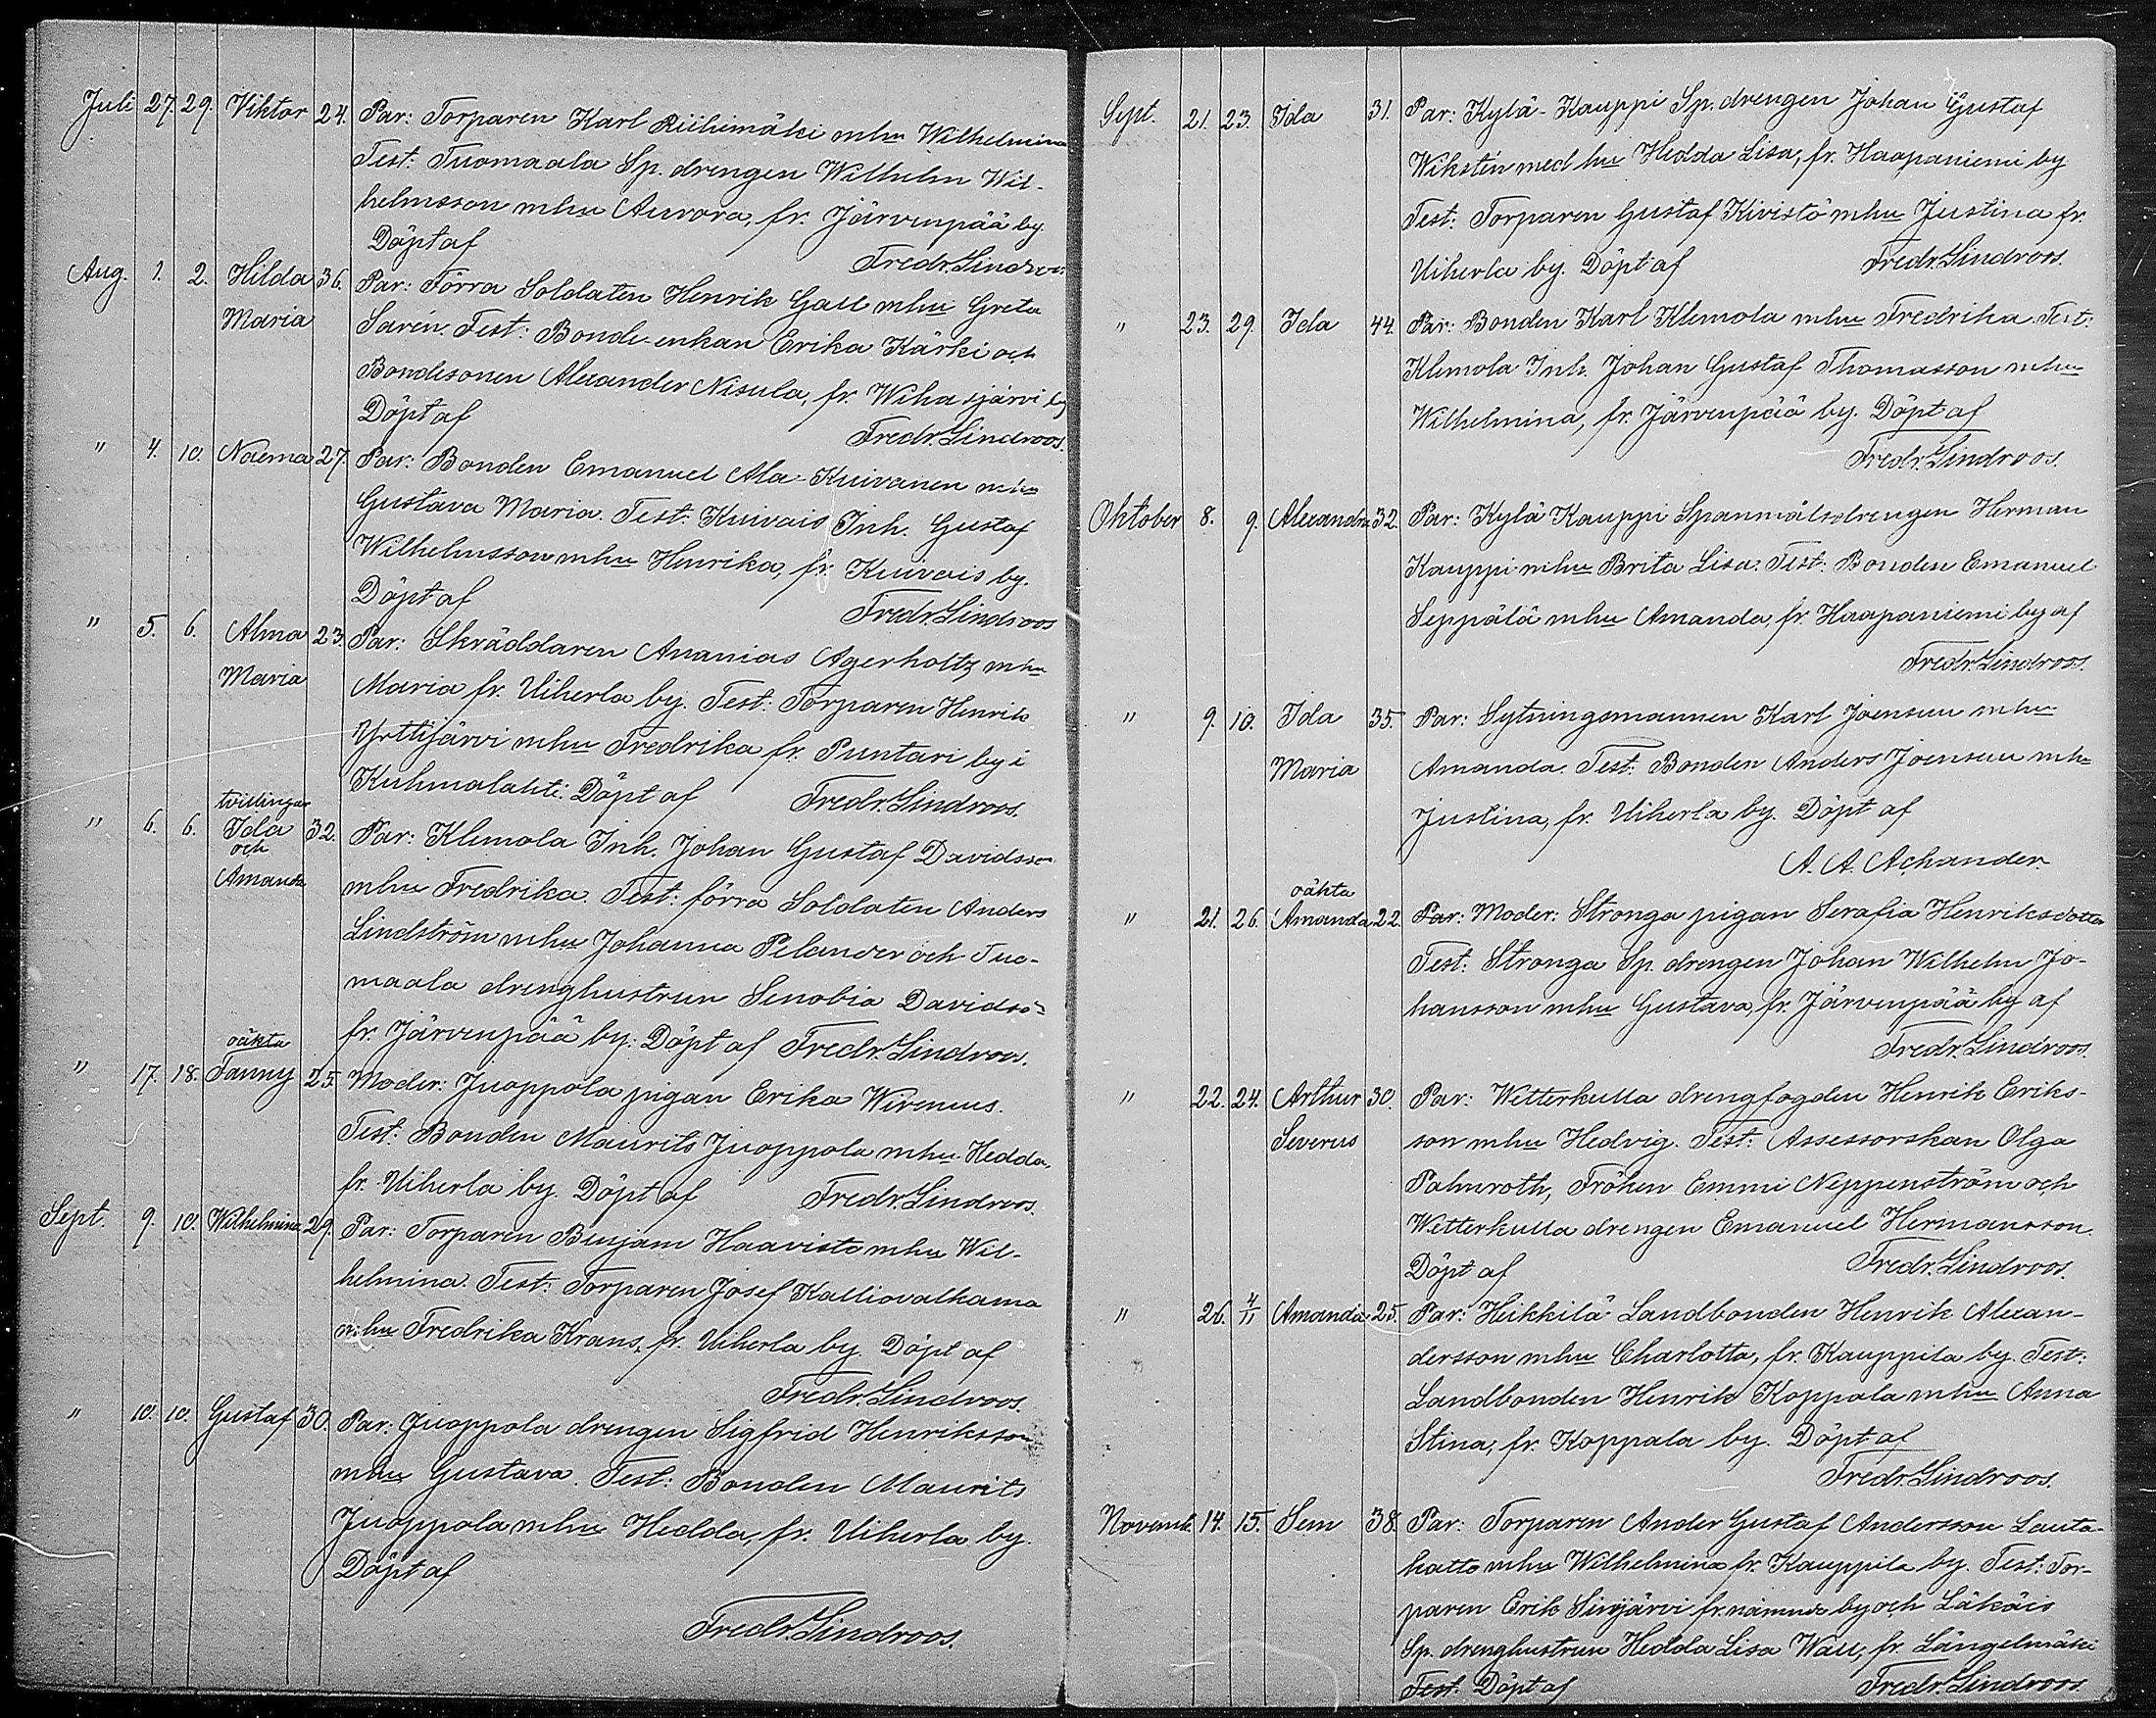 Juli 27. 29. Viktor 24. Par: Torparen Karl Riihimäki mhu Wilhelmina
Test: Tuomaala Sp. drengen Wilhelm Wil-
helmsson mhu Aurora, fr. Järvenpää by.
Döpt af Fredr. Lindroos
Aug. 1. 2. Hilda 36. Par: Förra Soldaten Henrik Gall mhu Greta
Maria Sarén. Test: Bonde-enkan Erika Kärki och
Bondesonen Alexander Nisula, fr. Wihasjärvi by
Döpt af Fredr. Lindroos.
" 4. 10. Naema 27. Par: Bonden Emanuel Ala-Kuivanen mhu
Gustava Maria. Test: Kuivais Inh. Gustaf
Wilhelmsson mhu Henrika, fr. Kuivais by.
Döpt af Fredr. Lindroos
" 5. 6. Alma 23. Par: Skräddaren Ananias Agerholtz mhu
Maria Maria fr. Uiherla by. Test: Torparen Henrik
Yrttijärvi mhu Fredrika fr. Puntari by i
Kuhmalahti. Döpt af Fredr. Lindroos.
tvillingar
" 6. 6. Ida 32. Par: Klemola Inh. Johan Gustaf Davidsson
och
Amanda mhu Fredrika. Test: förra Soldaten Anders
Lindström mhu Johanna Pelander och Tuo-
maala drenghustrun Senobia Davids
fr. Järvenpää by. Döpt af Fredr. Lindroos.
oäkta
" 17. 18. Fanny 25. Moder: Juoppola pigan Erika Wirenius.
Test: Bonden Maurits Juoppola mhu Hedda,
fr. Uiherla by. Döpt af Fredr. Lindroos.
Sept. 9. 10. Wilhelmina 29. Par: Torparen Benjam Haavisto mhu Wil-
helmina. Test: Torparen Josef Kalliovalkama
mhu Fredrika Krans, fr. Uiherla by. Döpt af
Fredr. Lindroos.
" 10. 10. Gustaf 30. Par: Juoppola drengen Sigfrid Henriksson
mhu Gustava. Test: Bonden Maurits
Juoppola mhu Hedda, fr. Uiherla by.
Döpt af
Fredr. Lindroos.
Sept. 21. 23. Ida 31. Par: Kylä-Kauppi Sp. drengen Johan Gustaf
Wikstén med hu Hedda Lisa, fr. Haapaniemi by
Test: Torparen Gustaf Kivistö mhu Justina fr.
Uiherla by. Döpt af Fredr. Lindroos.
" 23. 29. Ida 44. Par: Bonden Karl Klemola mhu Fredrika. Test:
Klemola Inh. Johan Gustaf Thomasson mhu
Wilhelmina, fr. Järvenpää by. Döpt af
Fredr. Lindroos.
Oktober 8. 9. Alexandra 32. Par: Kylä Kauppi Spanmålsdrengen Herman
Kauppi mhu Brita Lisa. Test: Bonden Emanuel
Seppälä mhu Amanda, fr. Haapaniemi by af
Fredr. Lindroos.
" 9. 10. Ida 35. Par: Sytningsmannen Karl Joensuu mhu
Maria Amanda. Test: Bonden Anders Joensuu mhu
Justina, fr. Uiherla by. Döpt af
A. A. Achander.
oäkta
" 21. 26. Amanda 22. Par: Moder: Stronga pigan Serafia Henriksdotter
Test: Stronga Sp. drengen Johan Wilhelm Jo-
hansson mhu Gustava, fr. Järvenpää by af
Fredr. Lindroos.
" 22. 24. Arthur 30. Par: Wetterkulla drengfogden Henrik Eriks-
Severus son mhu Hedvig. Test: Assessorskan Olga
Palmroth, Fröken Emmi Neppenström och
Wetterkulla drengen Emanuel Hermansson.
Döpt af Fredr. Lindroos.
" 26. 4/11 Amanda 25. Par: Heikkilä Landbonden Henrik Alexan-
dersson mhu Charlotta, fr. Kauppila by. Test:
Landbonden Henrik Koppala mhu Anna
Stina, fr. Koppala by. Döpt af
Fredr. Lindroos.
Novemb. 14. 15. Sem 38. Par: Torparen Ander Gustaf Andersson Lauta-
katto mhu Wilhelmina fr. Kauppila by. Test: Tor-
paren Erik Sinijärvi fr. nämnde by och Läkäis
Sp. drenghustrun Hedda Lisa Wall, fr. Längelmäki
Test. Döpt af Fredr. Lindroos